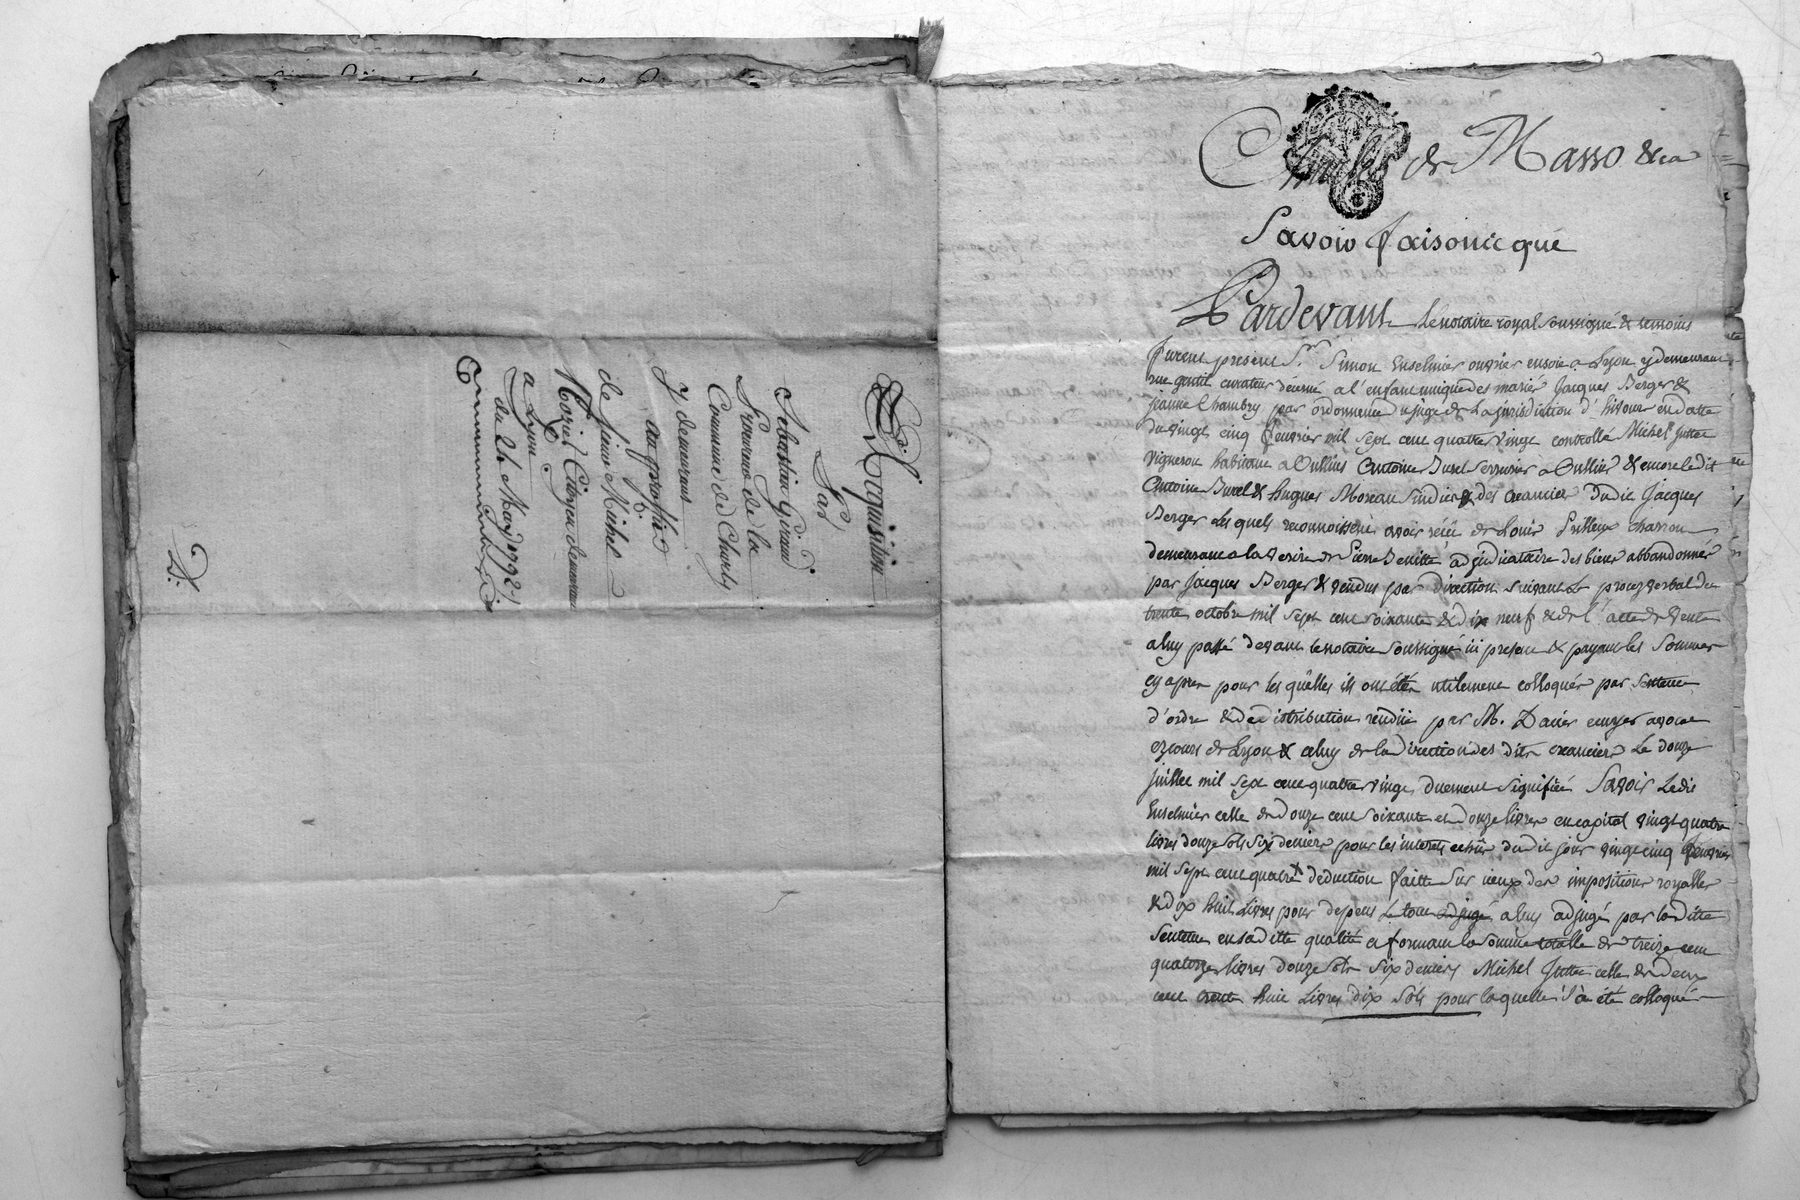 Requisition
Par
Sebastien Giraud
De
Commune de Charly
y demeurant
au proffit
de Sieur Michel
Moziol Citoyen demeurant
a Lyon
du 21 May 1792
D:
Charles de Masso &ca
Savoir faisonc que
Pardevant le notaire royal soussigné & temoins
furent present Sr. Simon Enselmier ouvrier en soie a Lyon y demeurant
rue gentil curateur decerné a l'enfant unique des mariés Jacques Berger &
jeanne Chambry par ordonnance du juge de la jurisdiction d' en datte
du vingt cinq fevrier mil sept cent quatre vingt controllé Michel Juttet
vigneron habitant a Oullins Antoine Burel serrurier a Oullins & encore ledit
Antoine Burel & hugues Moreau sindics des creanciers dudit Jacques
Berger Lesquels reconnoissent avoir reçu de Louis charron
demeurant a la de Pierre Benite adjudicataire des biens abbandonnés
par Jacques Berger & vendus par direction suivant Le procez verbal du
trente octobre mil sept cent soixante & dix neuf & de l'acte de vente
a luy passé devant le notaire soussigné ici present & payant les sommes
cy apres pour les quelles ils ont été utilement colloqués par sentence
d'ordre & de distribution rendüe par M. Daniés ecuyer avocat
ez cours de Lyon & celuy de la direction des dits creanciers Le douze
juillet mil sept cent quatre vingt duement signifiée Savoir Ledit
Enselmier celle de douze cent soixante et douze livres en capital vingt quatre
livres douze sols six deniers pour les interets echüs dudit jour vingt cinq fevrier
mil sept cent quatre deduction faitte sur iceux des impositions royalles
& dix huit Livres pour depens Le tout adjugé a luy adjugé par la ditte
sentence en sa ditte qualité et formant la somme totalle de treize cent
quatorze livres douze sols six deniers Michel Juttet celle de deux
cent trente huit Livres dix sols pour laquelle il a été colloqué